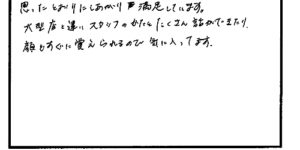 思ったとおりにしあがり満足しています。
大型店と違いスタッフのかたとたくさん話ができたり、
顔もすぐに覚えられるので気に入ってます。